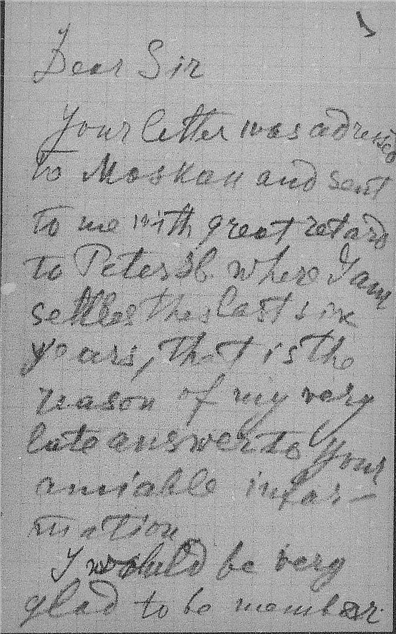 Dear Sir
Your letter was adressed
to Moskau and sent
to me with great retard
to Petersb. where I am
settles the last six
years, that is the
reason of my very
late answer to Your
amiable infor-
mation.
I would be very
glad to be member